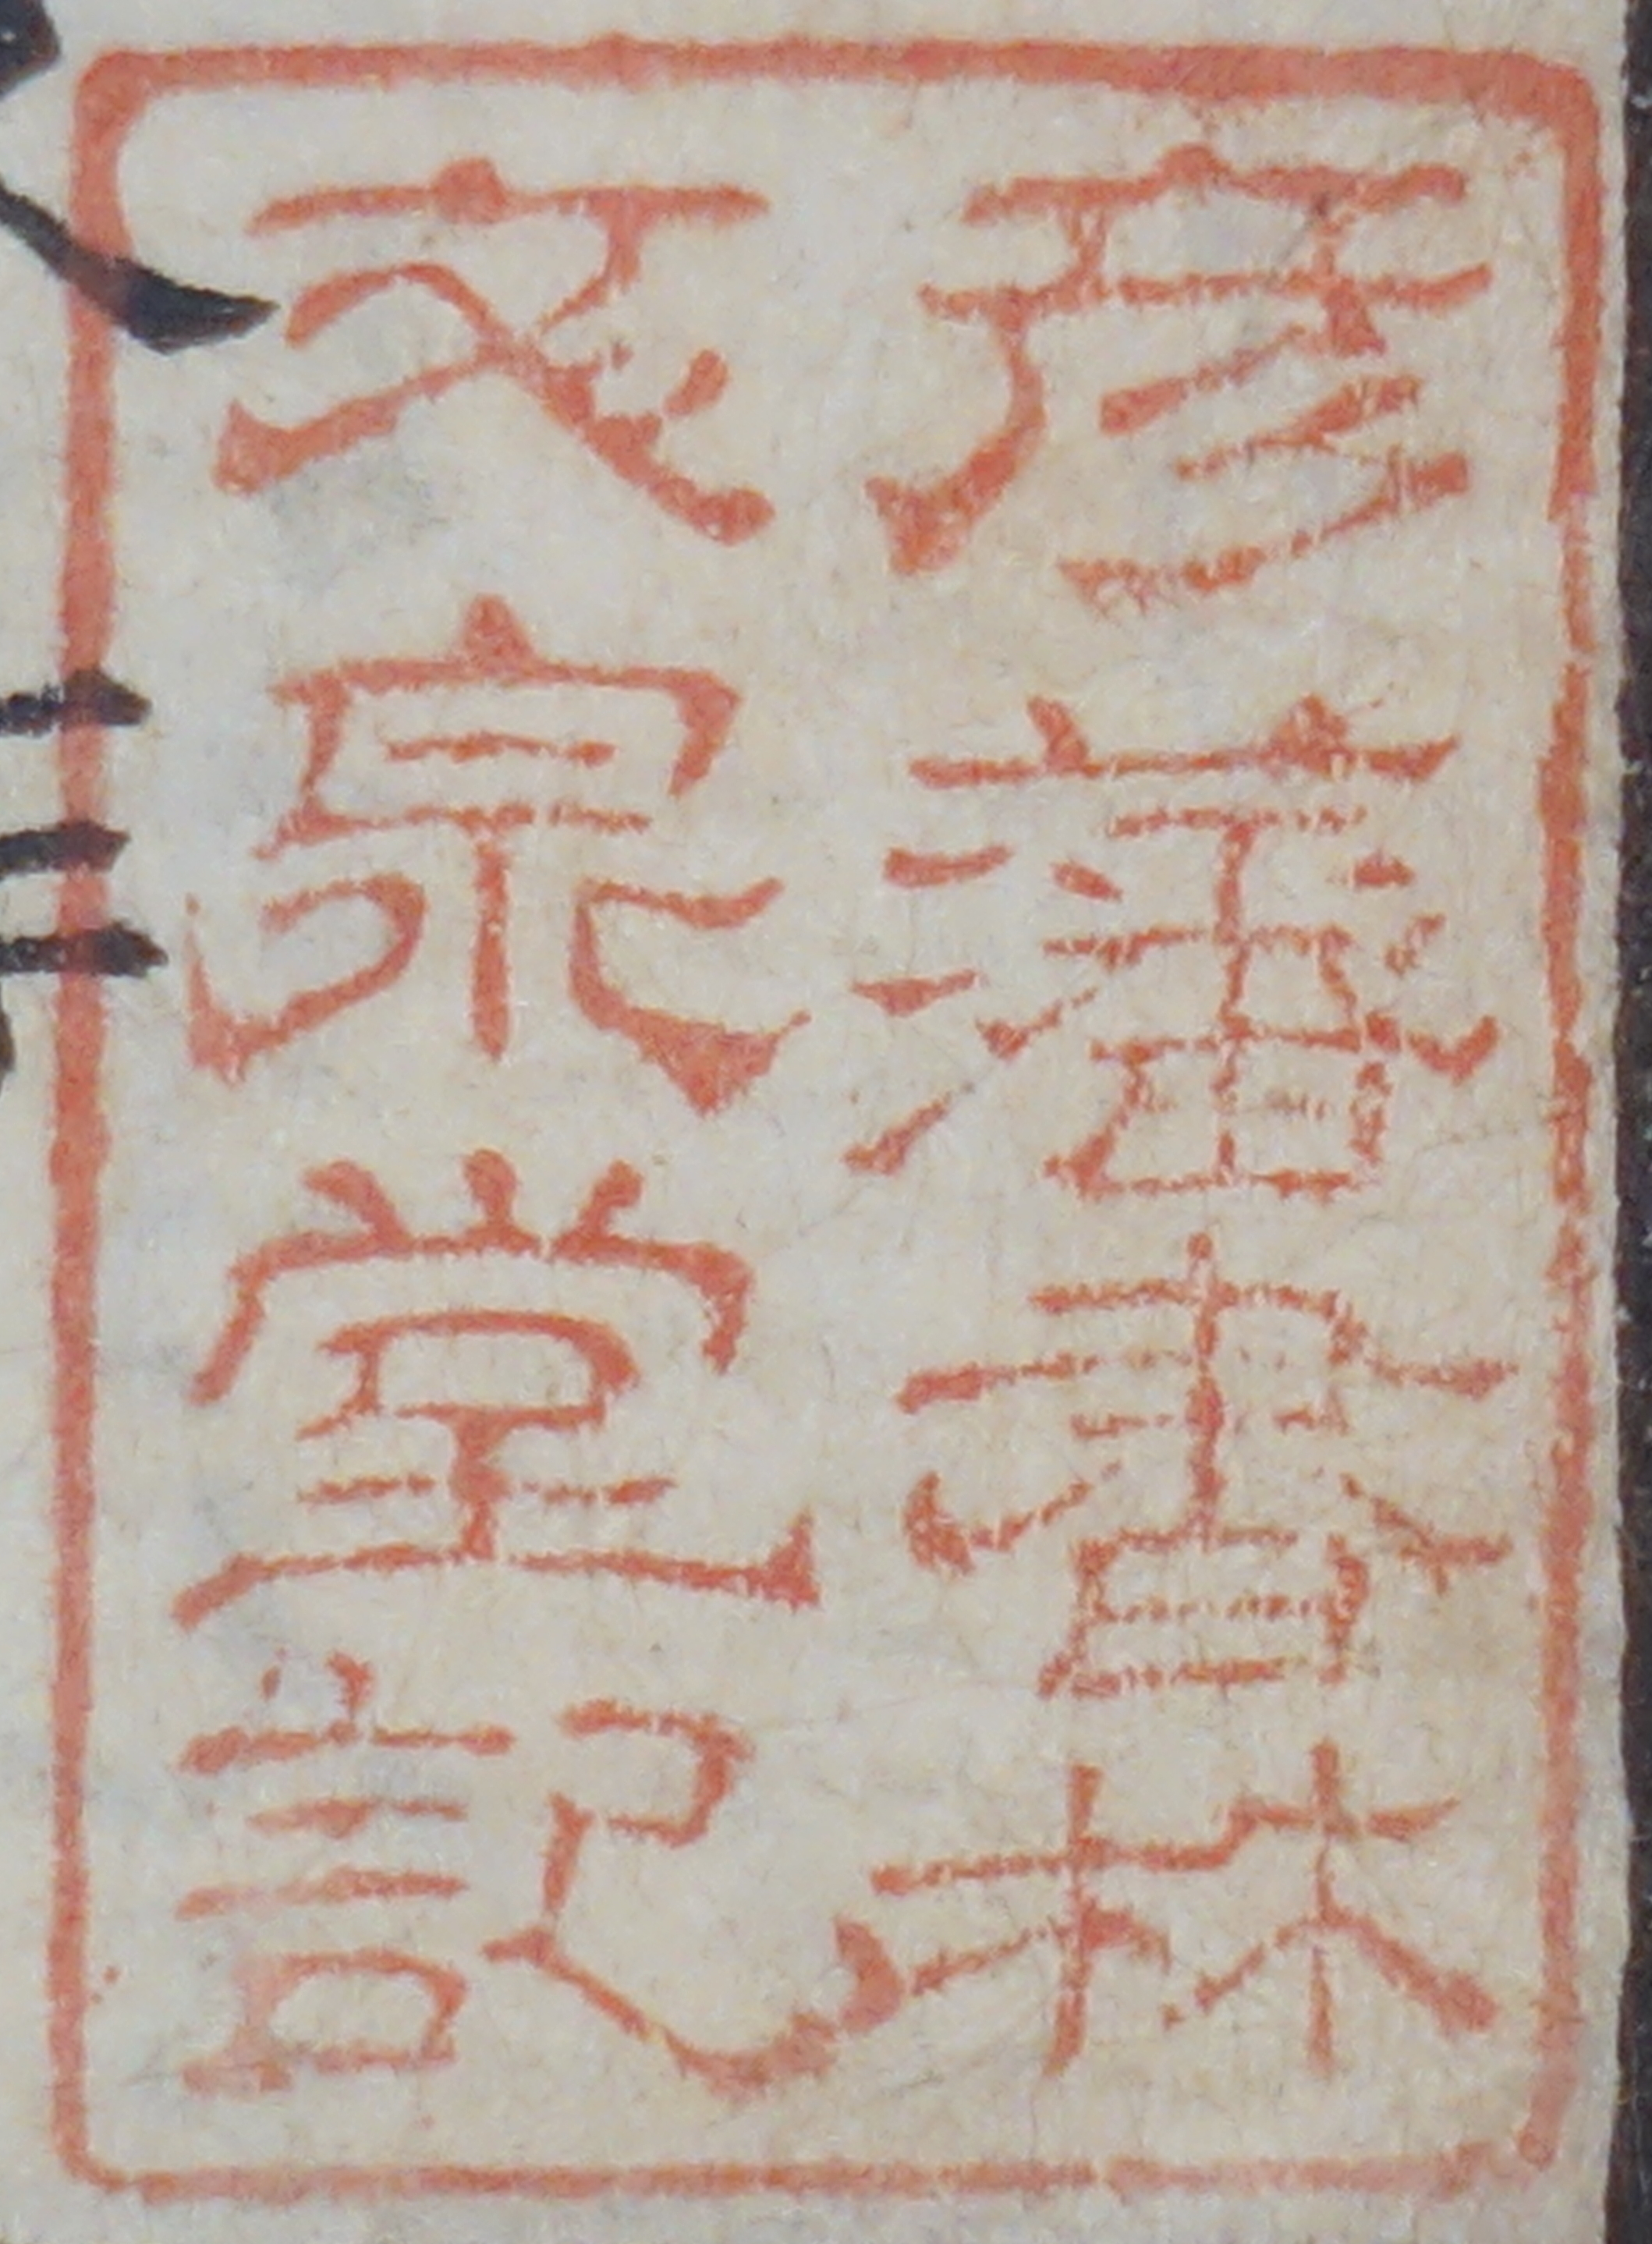 彦藩書林
文泉堂記